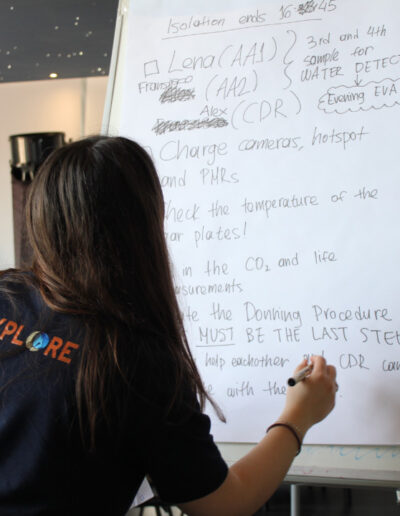 Isolation ends 16:45
Lena (AA1)
3rd and 4th
sample for
WATER DETECT
Evening EVA
(AA2)
Alex
(CDR)
Charge cameras, hotspot
and PMRs
heck the temperature of the
plates!
in the CO2 and life
the Donning Procedure
MUST BE THE LAST STE
help eachother CDR can
with the
XPLORE